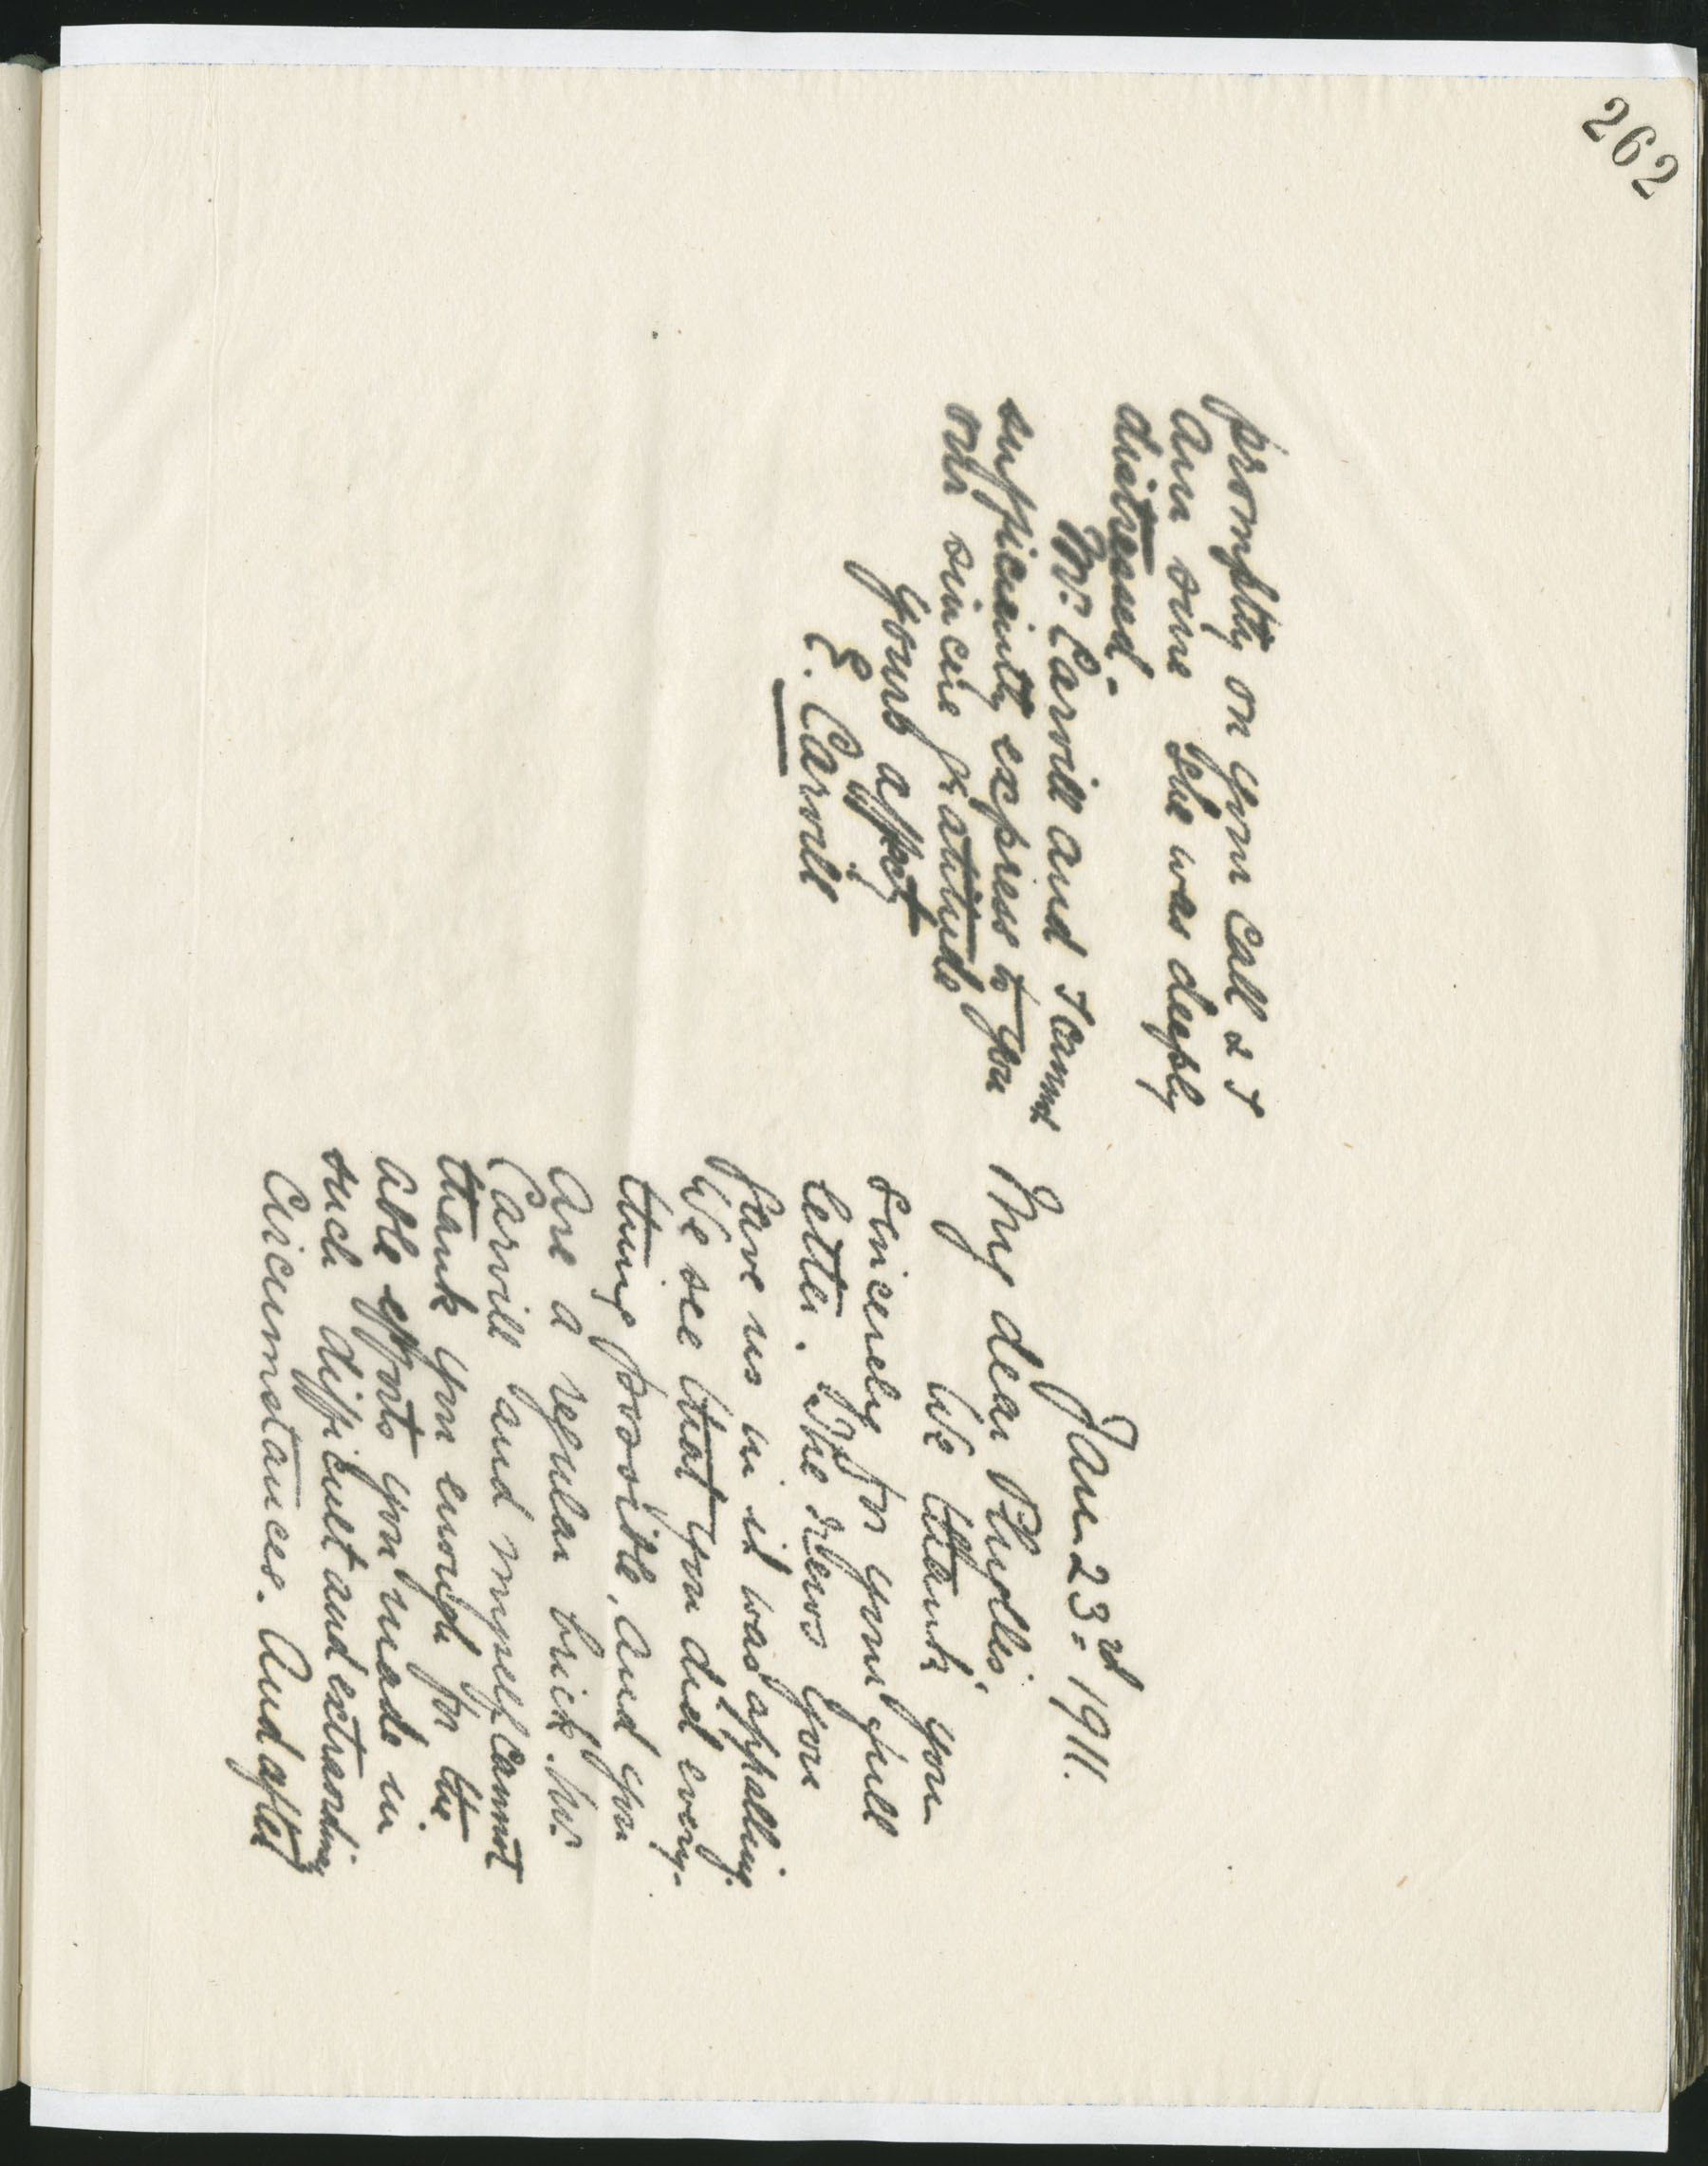 262
promptly on your call & I
am sure she was deeply
distressed.
Mr. Carvill and I cannot
sufficiently express to you
our sincere gratitude
Yours affect
E. Carvill
Jan 23rd 1911.
My dear Phyllis,
We thank you
sincerely for your full
letter. The news you
gave us in it was appalling.
We see that you did every-
thing possible, and you
are a regular brick. Mr.
Carvill and myself cannot
thank you enough for the
able efforts you made in
such difficult and extraordinary
circumstances. And after